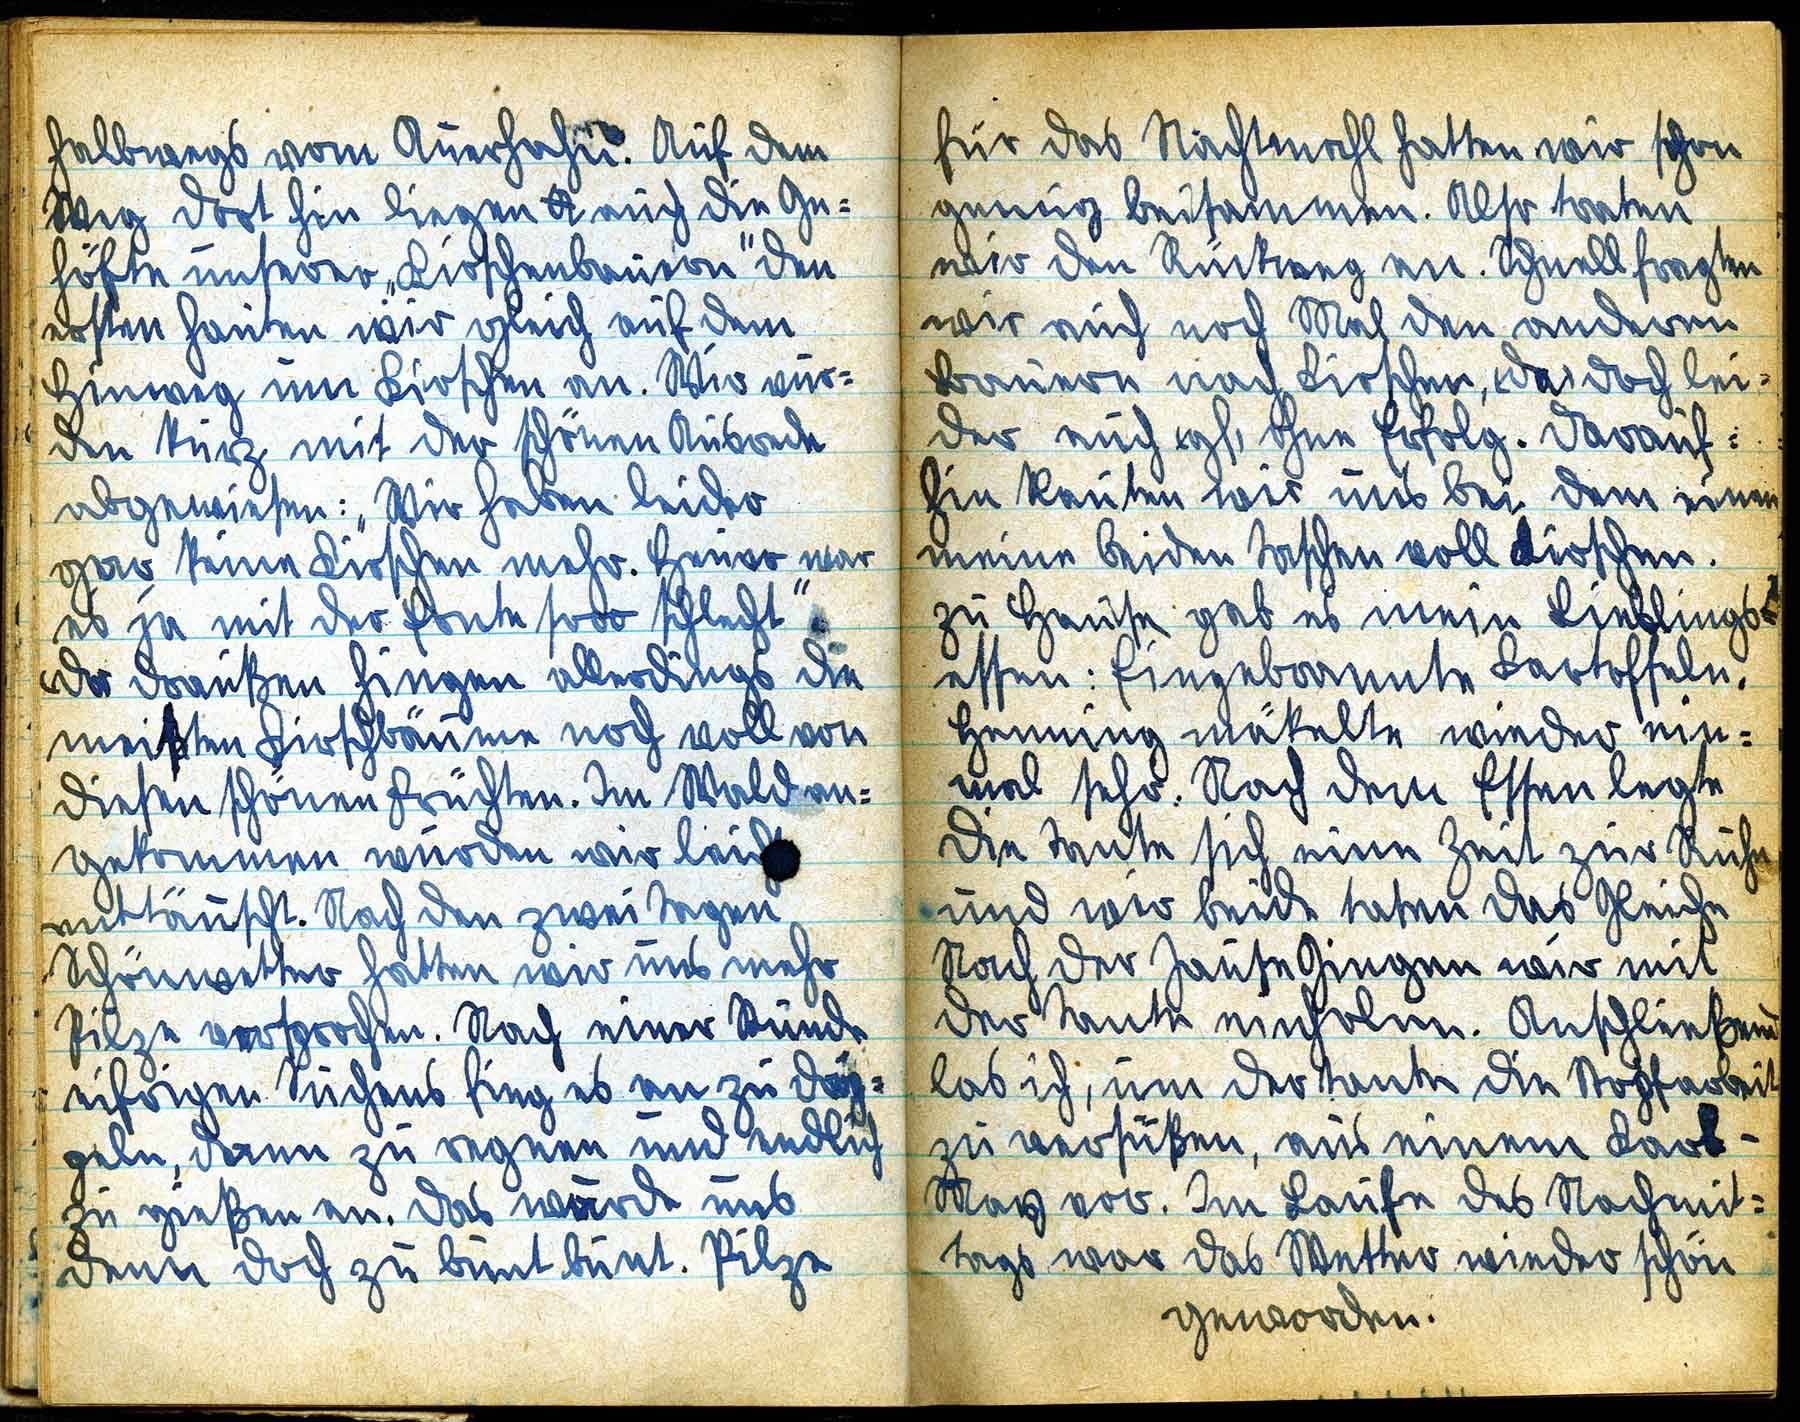 halbwegs vom Auerhahn. Auf dem
Weg dort hin liegen auch die Ge=
höfte unserer „Kirschenbauern" den
ersten hauten wir gleich auf dem
Hinweg um Kirschen an. Wir wur=
den kurz mit der schönen Ausrede
abgewiesen: „Wir haben leider
gar keine Kirschen mehr. Heuer war
es ja mit der Ernte sooo schlecht"
Da draußen hingen allerdings die
meisten Kirschbäume noch voll von
diesen schönen Früchten. Im Wald an=
gekommen wurden wir leicht
enttäuscht. Nach den zwei Tagen
Schönwetter hatten wir uns mehr
Pilze versprochen. Nach einer Stunde
eifrigen Suchens fing es an zu
geln, dann zu regnen und endlich
zu gießen an. Das wurde uns
denn doch zu bunt bunt. Pilze
für das Nachtmahl hatten wir schon
genug beisammen. Also traten
wir den Rückweg an. Schnell fragten
wir auch noch Mal den anderen
Bauern nach Kirschen, doch lei=
der auch ohne Erfolg. Darauf=
hin kauften wir uns bei dem einen
meine beiden Taschen voll Kirschen.
zu Hause gab es mein Lieblings=
essen: Eingebrannte Kartoffeln.
Henning mäkelte wieder ein=
mal sehr. Nach dem Essen legte
die Tante sich eine Zeit zur Ruhe
und wir beide taten das Gleiche
Nach der Jause Gingen wir mit
der Tante einholen. Anschließend
las ich, um der Tante die Stopfarbeit
zu versüßen, aus einem Karl-
May vor. Im Laufe des Nachmit=
tags war das Wetter wieder schön
geworden.